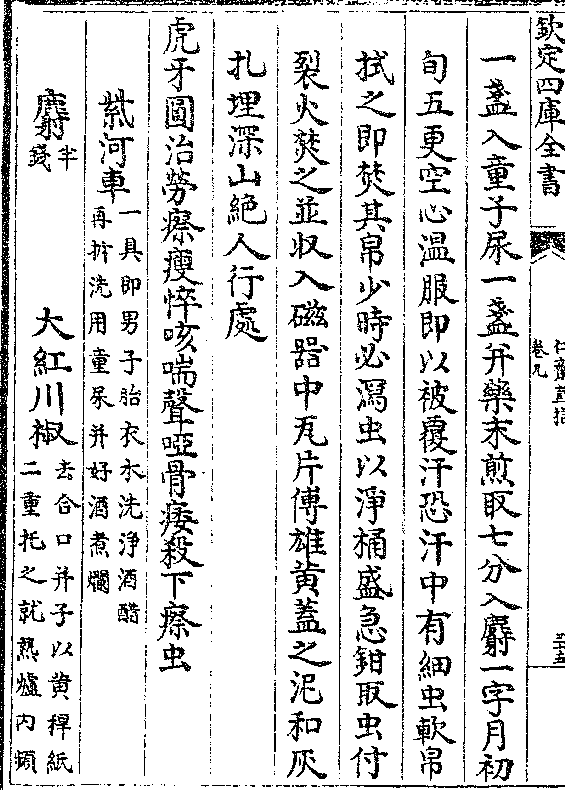 欽定四庫全書
仁齋直指
卷九
三十五
一盞入童子尿一盞并藥末煎取七分入麝一字月初
旬五更空心溫服即以被覆汗恐汗中有細虫軟帛
拭之即焚其帛少時必瀉虫以淨桶盛急鉗取虫付
烈火焚之並收入磁器中瓦片傅雄黄蓋之泥和灰
扎埋深山絕人行處
虎牙圓治勞瘵瘦悴咳喘聲啞骨痿殺下瘵虫
紫河車一具即男子胎衣水洗淨酒醋再折洗用童尿并好酒煮爛
麝半錢 大紅川椒去合口并子以黄稈紙二重托之就熱爐内頓